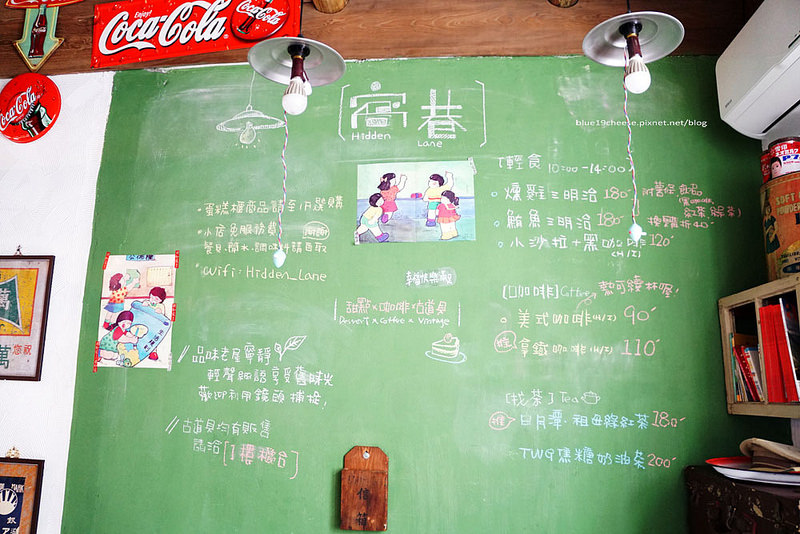 Enjoy!
Coca-Cola
Coca-Cola
Coca-Cola
[窩巷]
Hidden Lane
blue19cheese.pixnet.net/blog
·蛋糕櫃商品請至1F選購
·小店免服務費
餐具.開水.調味料請自取
·Wifi：Hidden_Lane
甜點x咖啡x古道具
Dessert x Coffee x Vintage
//品味老屋寧靜
輕聲細語享受舊時光
歡迎利用鏡頭捕捉!
//古道具均有販售
請洽[1樓櫃台]
[輕食 10:00-14:00]
燻雞三明治 180
鮪魚三明治 180
小沙拉+黑咖啡 120
(H/I)
[咖啡] Coffee
美式咖啡(H/I) 90
推 拿鐵咖啡(H/I) 110
[找茶] Tea
推 日月潭·祖母綠紅茶 180
TWG焦糖奶油茶 200
信箱